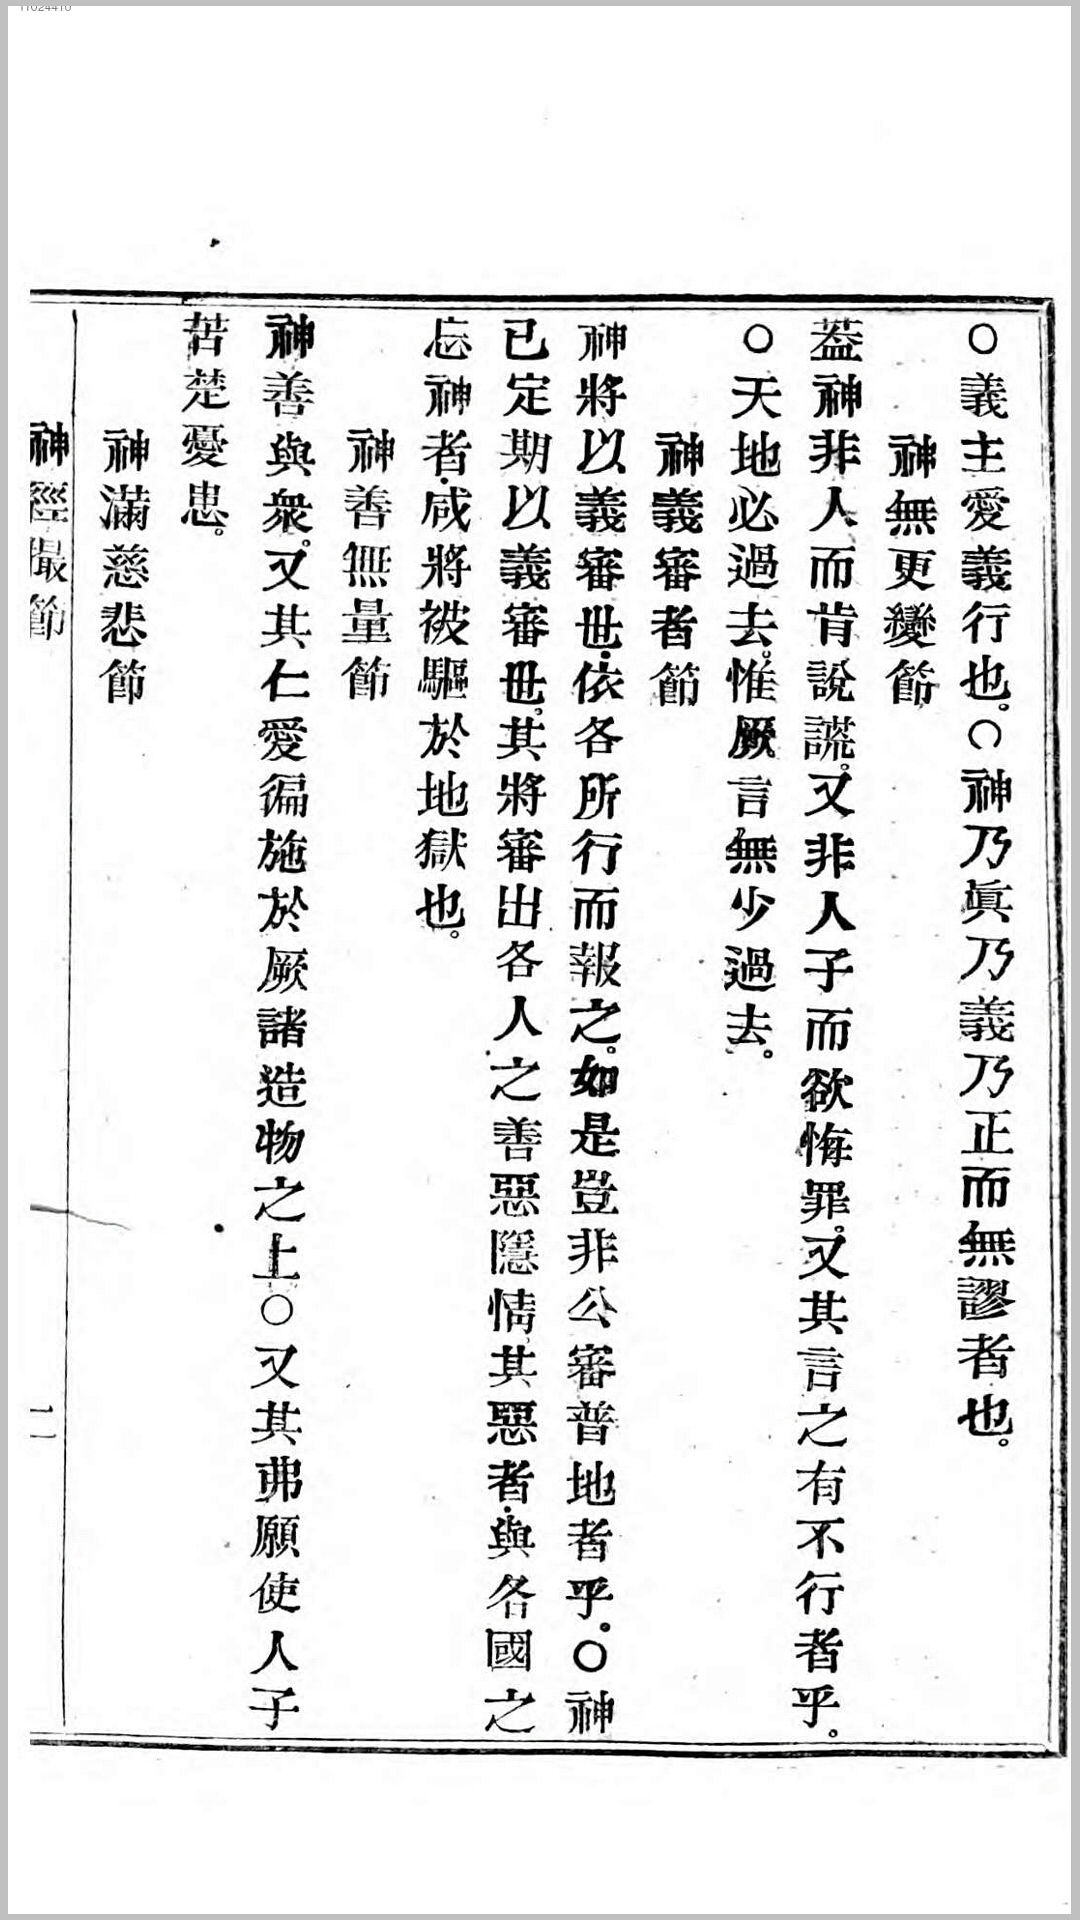 ○義主愛義行也。○神乃眞乃義乃正而無謬者也。
神無更變節
葢神非人而肯說謊。又非人子而欲悔罪。又其言之有不行者乎。
○天地必過去。惟厥言無少過去。
神義審者節
神將以義審世。依各所行而報之。如是豈非公審普地者乎。○神
已定期以義審世。其將審出各人之善惡隱情。其惡者。與各國之
忘神者。咸將被驅於地獄也。
神善無量節
神善與衆。又其仁愛徧施於厥諸造物之上○又其弗願使人子
苦楚憂患。
神滿慈悲節
神經撮節
二